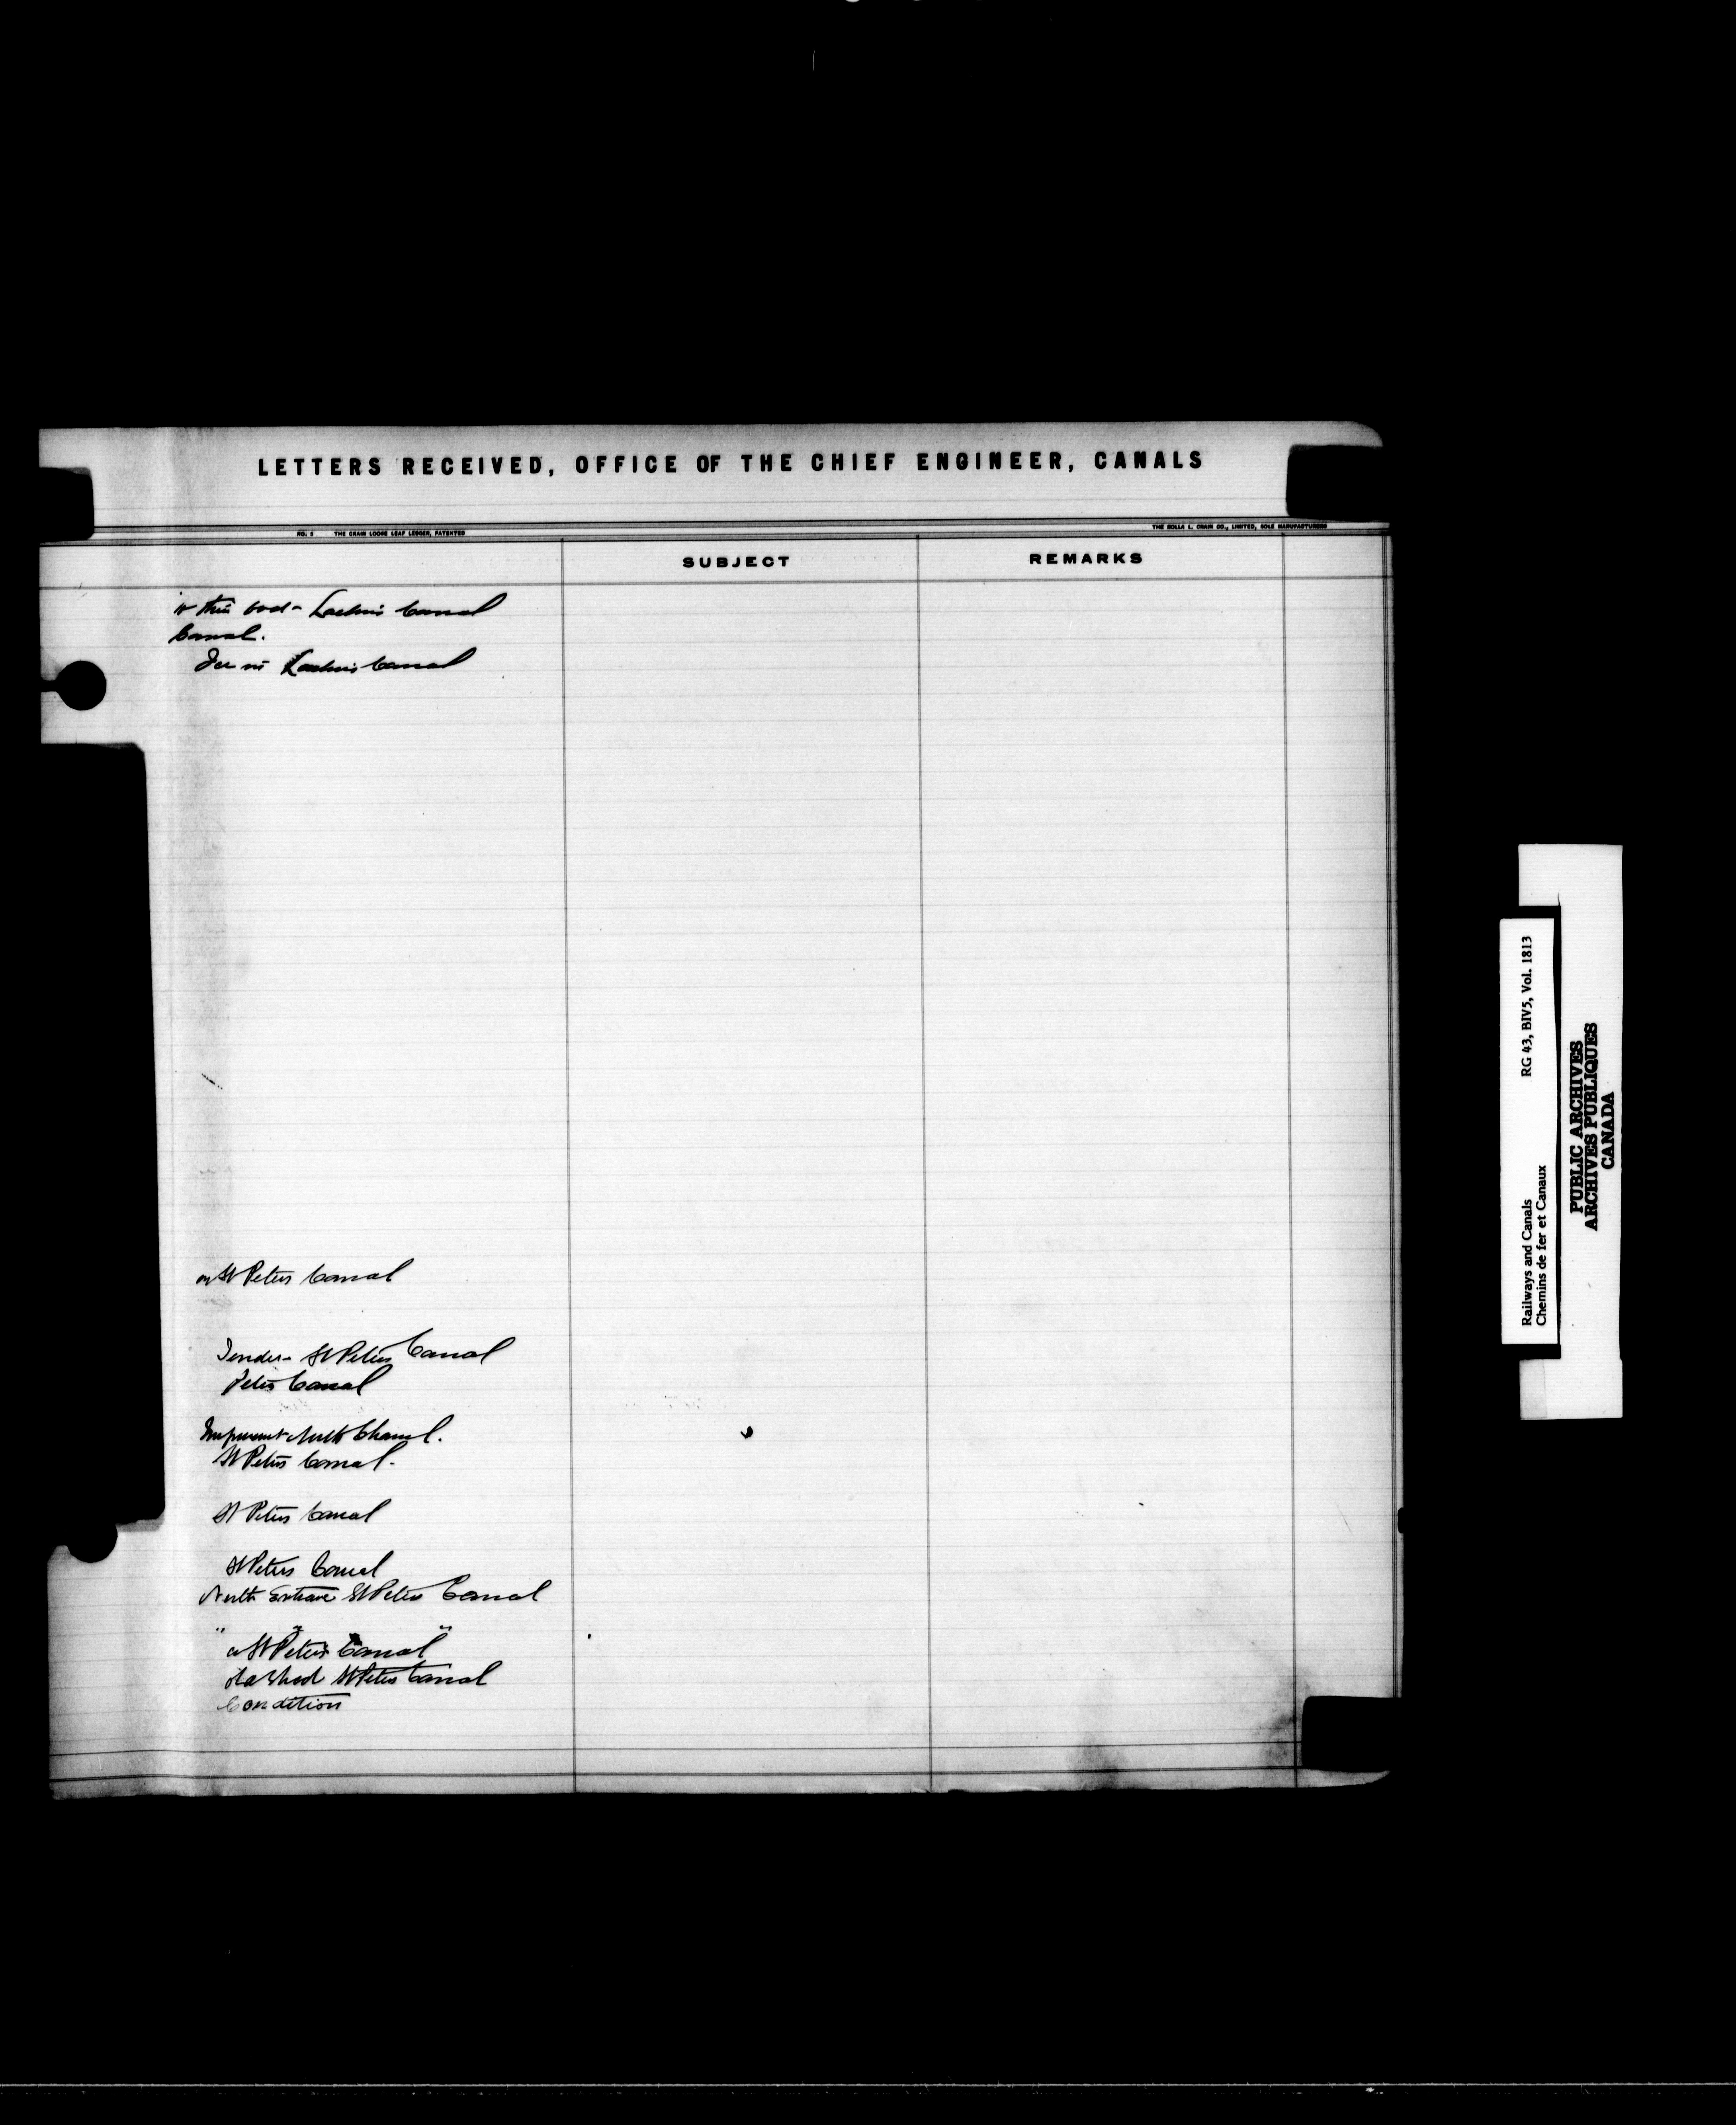 LETTERS RECEIVED, OFFICE OF THE CHIEF ENGINEER, CANALS
NO. 5 THE CRAIN LOOSE LEAF LEDGER, PATENTED
THE ROLLA L. CRAIN CO., LIMITED, SOLE MANUFACTURERS
SUBJECT
REMARKS
Lachine Canal
Canal.
Lachine Canal
on St Peters Canal
Tender - St Peters Canal
Peters Canal
North Channel.
St Peters Canal.
St Peters Canal
St Peters Canal
North Entrance St Peters Canal
" " "
St Peters Canal
St Peters Canal
Condition
Railways and Canals RG 43, BIV5, Vol. 1813
Chemins de fer et Canaux
PUBLIC ARCHIVES
ARCHIVES PUBLIQUES
CANADA